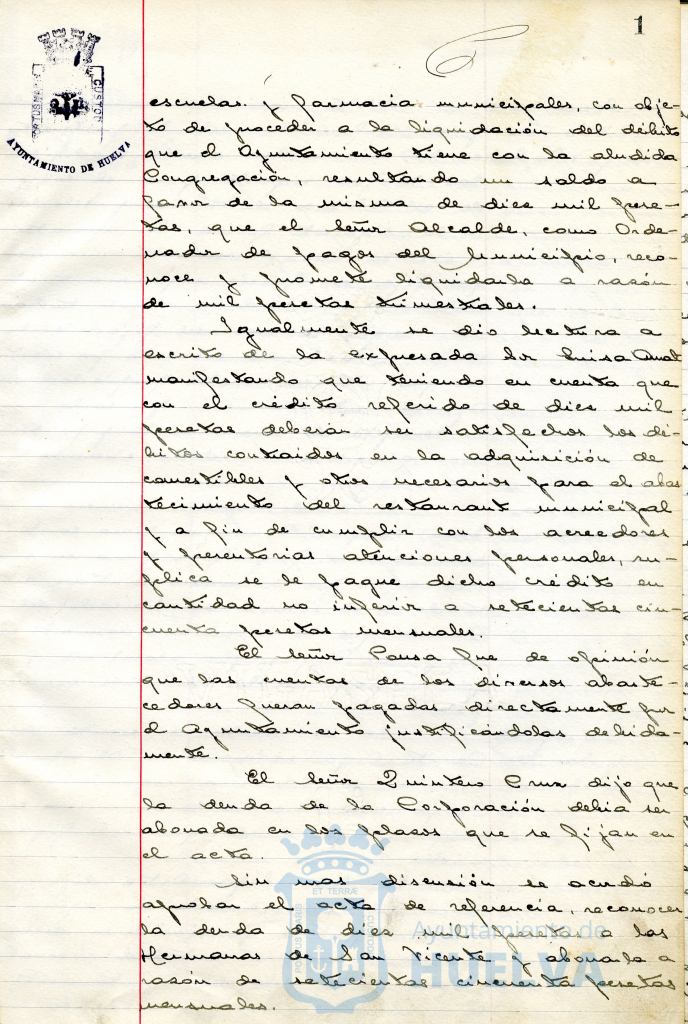 1
PORTUS MARIS
CUSTOR
AYUNTAMIENTO DE HUELVA
escuelas y farmacia municipales, con obje-
to de proceder a la liquidación del débito
que el Ayuntamiento tiene con la aludida
Congregación, resultando un saldo a
favor de la misma de diez mil pese-
tas, que el Señor Alcalde, como Orde-
nador de pagos del Municipio, reco-
noce y promete liquidarla a razón
de mil pesetas trimestrales.
Igualmente se dio lectura a
escrito de la expresada Sor Luisa
manifestando que teniendo en cuenta que
con el crédito referido de diez mil
pesetas deberán ser satisfechos los dé-
bitos contraidos en la adquisición de
comestibles y otros necesarios para el abas
tecimiento del restaurant municipal
y a fin de cumplir con los acreedores
y perentorias atenciones personales, su-
plica se le pague dicho crédito en
cantidad no inferior a setecientas cin-
cuenta pesetas mensuales.
El Señor Pousa fue de opinión
que las cuentas de los diversos abaste-
cedores fueran pagadas directamente por
el Ayuntamiento justificándolas debida-
mente.
El Señor Quintero Cruz dijo que
la deuda de la Corporación debia ser
abonada en los plazos que se fijan en
el acta.
Sin mas discusión se acordó
aprobar el acta de referencia, reconocer
la deuda de diez mil pesetas a las
Hermanas de San Vicente y abonarla a
razón de setecientas cincuenta pesetas
mensuales.
ET TERRÆ
PORTUS MARIS
CUSTODIA
Ayuntamiento de
HUELVA